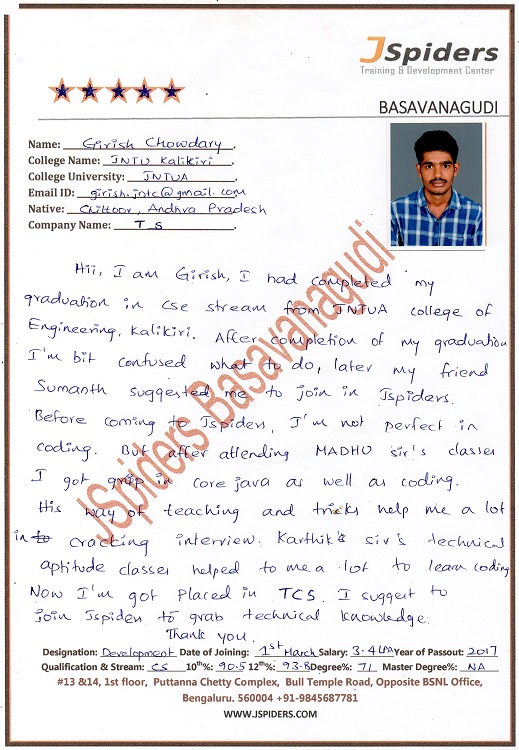 JSpiders
Training & Development Center
BASAVANAGUDI
Name: Girish Chowdary.
College Name: JNTU Kalikiri.
College University: JNTUA.
Email ID: girish.jntc@gmail.com
Native: Chittoor, Andhra Pradesh
Company Name: T S.
Hii, I am Girish, I had completed my
graduation in cse stream from JNTUA college of
Engineering, Kalikiri. After completion of my graduation
I'm bit confused what to do, later my friend
Sumanth suggested me to join in Jspiders.
Before coming to Jspiders, I'm not perfect in
coding. But after attending MADHU sir's classes
I got grip in core java as well as coding.
His way of teaching and tricks help me a lot
in cracking interview. Karthik's sir's technical
aptitude classes helped to me a lot to learn coding
Now I'm got placed in TCS. I suggest to
join Jspiders to grab technical knowledge.
Thank you.
JSpiders Basavanagudi
Designation: Development Date of Joining: 1st March Salary: 3.4 LPA Year of Passout: 2017
Qualification & Stream: CS 10th%: 90.5 12th%: 93.8 Degree%: 71 Master Degree%: NA
#13 &14, 1st floor, Puttanna Chetty Complex, Bull Temple Road, Opposite BSNL Office,
Bengaluru. 560004 +91-9845687781
WWW.JSPIDERS.COM